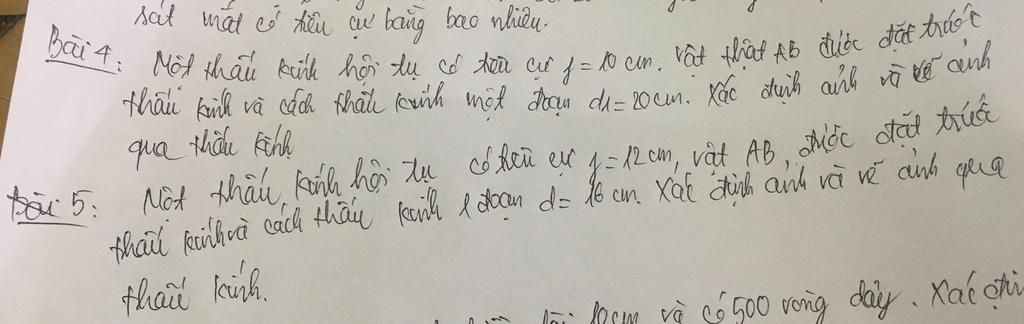 sát mắt có tiêu cự bằng bao nhiêu.
Bài 4: Một thấu kính hội tụ có tiêu cự f = 10 cm. Vật thật AB được đặt trước
thấu kính và cách thấu kính một đoạn d₁ = 20cm. Xác định ảnh và vẽ ảnh
qua thấu kính
Bài 5: Một thấu kính hội tụ có tiêu cự f = 12cm, vật AB, được đặt trước
thấu kính và cách thấu kính 1 đoạn d = 16 cm. Xác định ảnh và vẽ ảnh qua
thấu kính.
dài 10cm và có 500 vòng dây. Xác địn